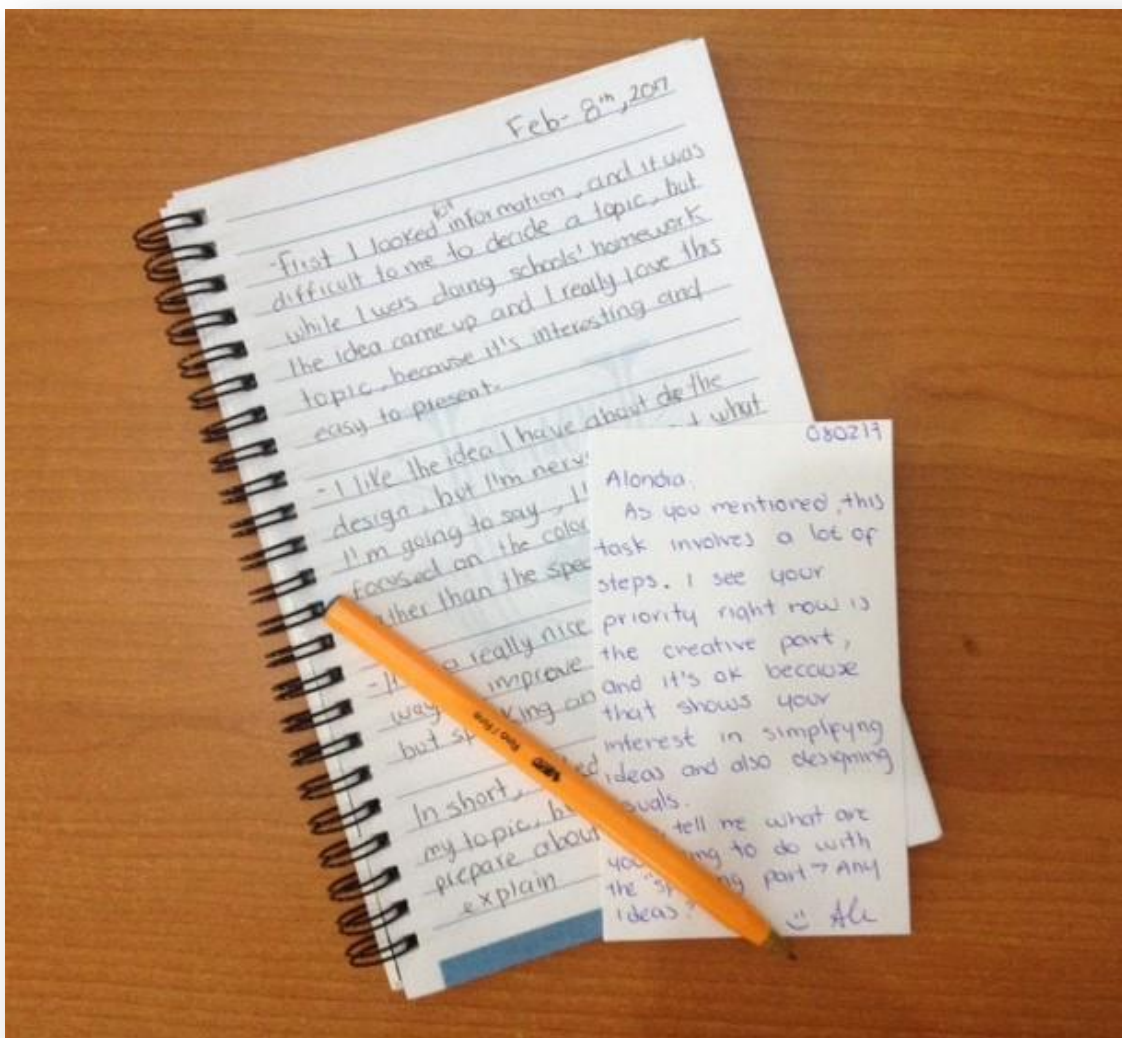 Feb- 8th, 2017
-First I looked for information, and it was
difficult to me to decide a topic, but
while I was doing schools' homework
the idea came up and I really love this
topic, because it's interesting and
easy to present.
-I like the idea I have about de the
design, but I'm
what
I'm going to say,
focused on the
rather than the
a really nice
improve
but
In short,
my topic,
prepare about
explain
080217
Alondra.
As you mentioned, this
task involves a lot of
steps. I see your
priority right now is
the creative part,
and it's ok because
that shows your
interest in simplifyng
ideas and also designing
tell me what are
to do with
the part → Any
ideas?
:) Ale
BIC